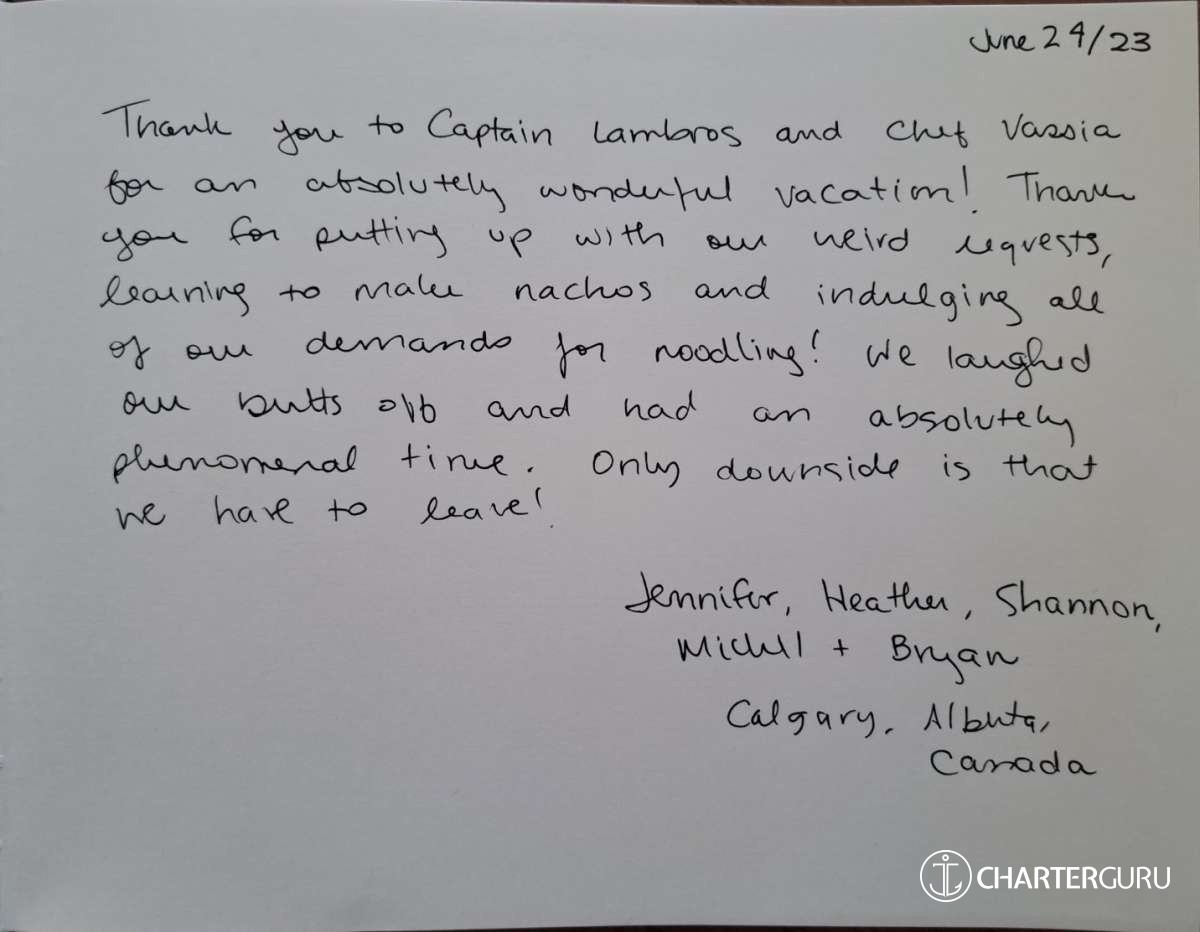 June 24/23
Thank you to Captain Lambros and Chef Vassia
for an absolutely wonderful vacation! Thank
you for putting up with our weird requests,
learning to make nachos and indulging all
of our demands for noodling! We laughed
our butts off and had an absolutely
phenomenal time. Only downside is that
we have to leave!
Jennifer, Heather, Shannon,
Michell + Bryan
Calgary, Alberta,
Canada
CHARTERGURU